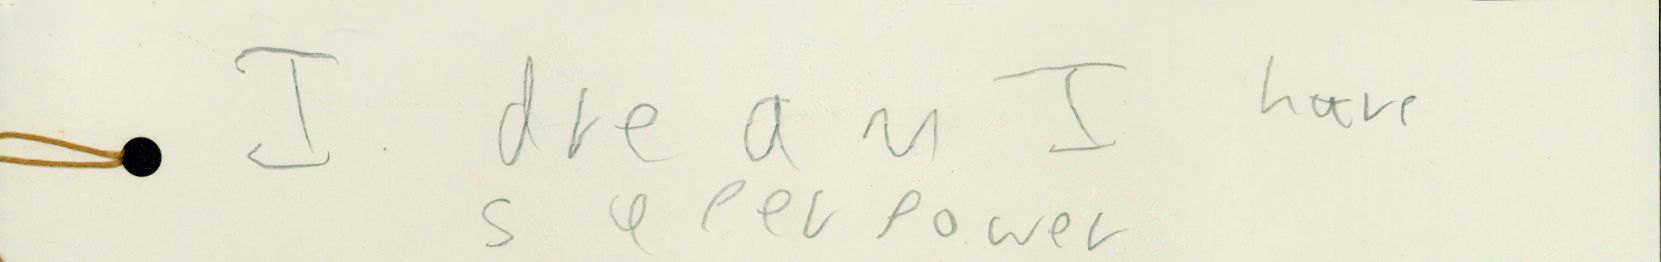 I dream I have
super power